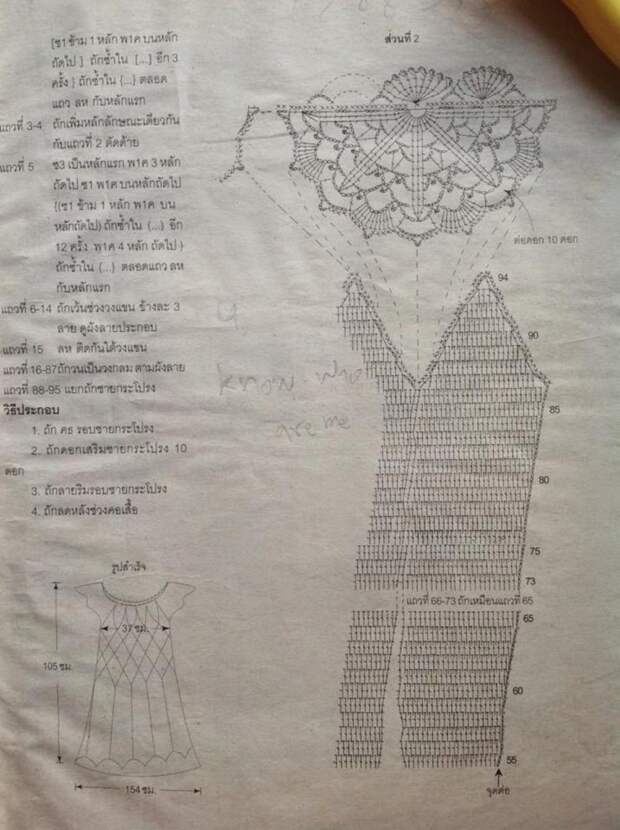 [ช1 ข้าม 1 หลัก พ1ค บนหลัก
ถัดไป ] ถักซ้ำใน [...] อีก 3
ครั้ง } ถักซ้ำใน {...} ตลอด
แถว ลห กับหลักแรก
แถวที่ 3-4 ถักเพิ่มหลักลักษณะเดียวกัน
กับแถวที่ 2 ตัดด้าย
แถวที่ 5 ช3 เป็นหลักแรก พ1ค 3 หลัก
ถัดไป ช1 พ1ค บนหลักถัดไป
{(ช1 ข้าม 1 หลัก พ1ค บน
หลักถัดไป) ถักซ้ำใน (...) อีก
12 ครั้ง พ1ค 4 หลัก ถัดไป }
ถักซ้ำใน {...} ตลอดแถว ลห
กับหลักแรก
แถวที่ 6-14 ถักเว้นช่วงวงแขน ข้างละ 3
ลาย ดูผังลายประกอบ
แถวที่ 15 ลห ติดกันใต้วงแขน
แถวที่ 16-87 ถักวนเป็นวงกลม ตามผังลาย
แถวที่ 88-95 แยกถักชายกระโปรง
วิธีประกอบ
1. ถัก คธ รอบชายกระโปรง
2. ถักดอกเสริมชายกระโปรง 10
ดอก
3. ถักลายริมรอบชายกระโปรง
4. ถักลดหลังช่วงคอเสื้อ
รูปสำเร็จ
37 ซม.
105 ซม.
154 ซม.
ส่วนที่ 2
ต่อดอก 10 ดอก
94
90
85
80
75
73
แถวที่ 66-73 ถักเหมือนแถวที่ 65
65
60
55
จุดต่อ
know who
are me